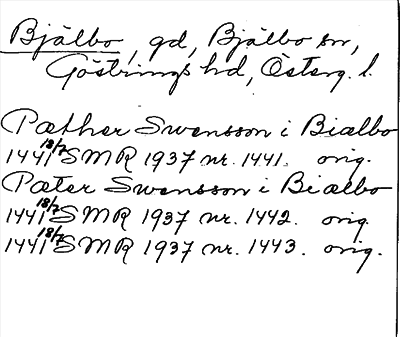 Bjälbo, gd, Bjälbo sn,
Göstrings hd, Österg. l.
Pæther Swensson i Biælbo
1441 18/7 SMR 1937 nr. 1441. orig.
Pæter Swensson i Biælbo
1441 18/7 SMR 1937 nr. 1442. orig.
1441 18/7 SMR 1937 nr. 1443. orig.